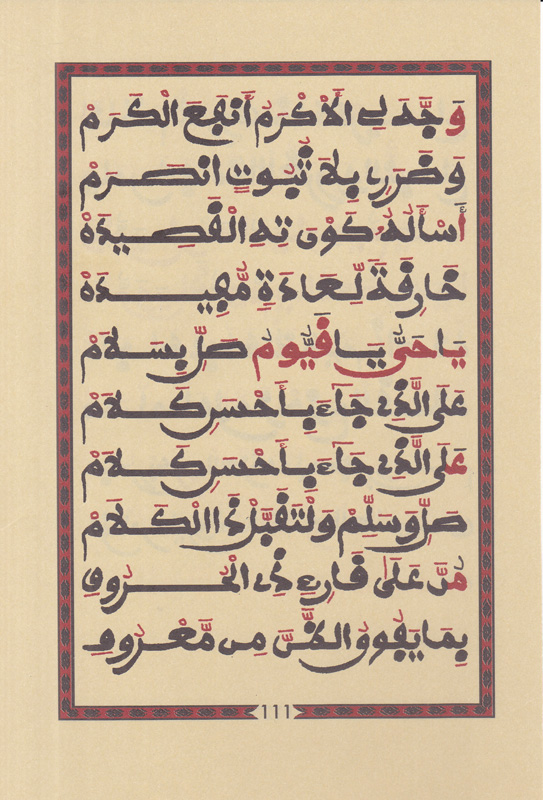 وَجَّدَ لِي الْأَكْرَمُ أَنْفَعَ الْكَرَمْ
وَضَرَرِي بِلَا ثُبُوتٍ انْصَرَمْ
أَسْأَلُهُ كَوْنَ تِهِ الْقَصِيدَهْ
خَارِقَةً لِعَادَةٍ مُّفِيدَهْ
يَا حَيُّ يَا قَيُّومُ صَلِّ بِسَلَامْ
عَلَى الَّذِي جَاءَ بِأَحْسَنِ كَلَامْ
عَلَى الَّذِي جَاءَ بِأَحْسَنِ كَلَامْ
صَلِّ وَسَلِّمْ وَلْتَقَبَّلْ ذَا الْكَلَامْ
هَنَّ عَلَى قَارِئِ ذِي الْحُرُوفِ
بِمَا يَفُوقُ الظَّنَّ مِن مَّعْرُوفِ
111